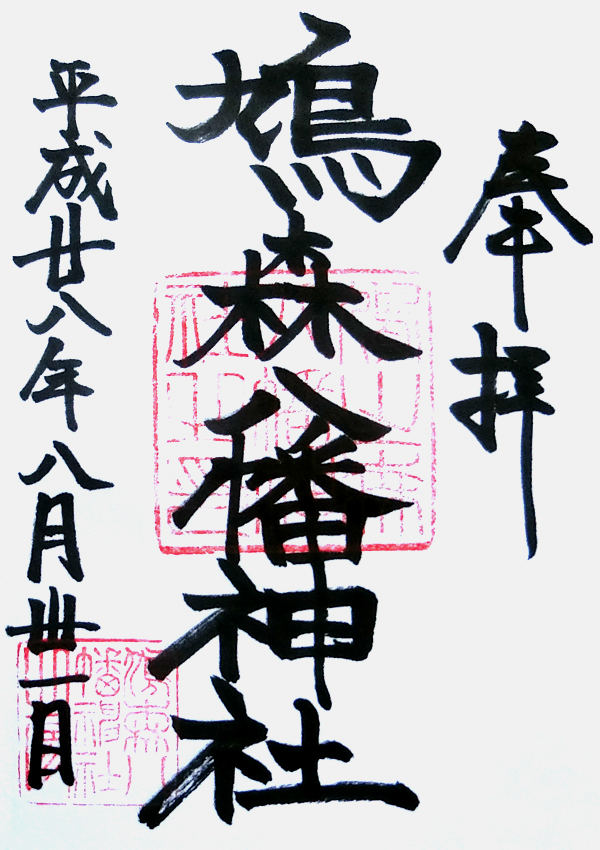 奉拝
鳩森八幡神社
平成廿八年八月丗一日